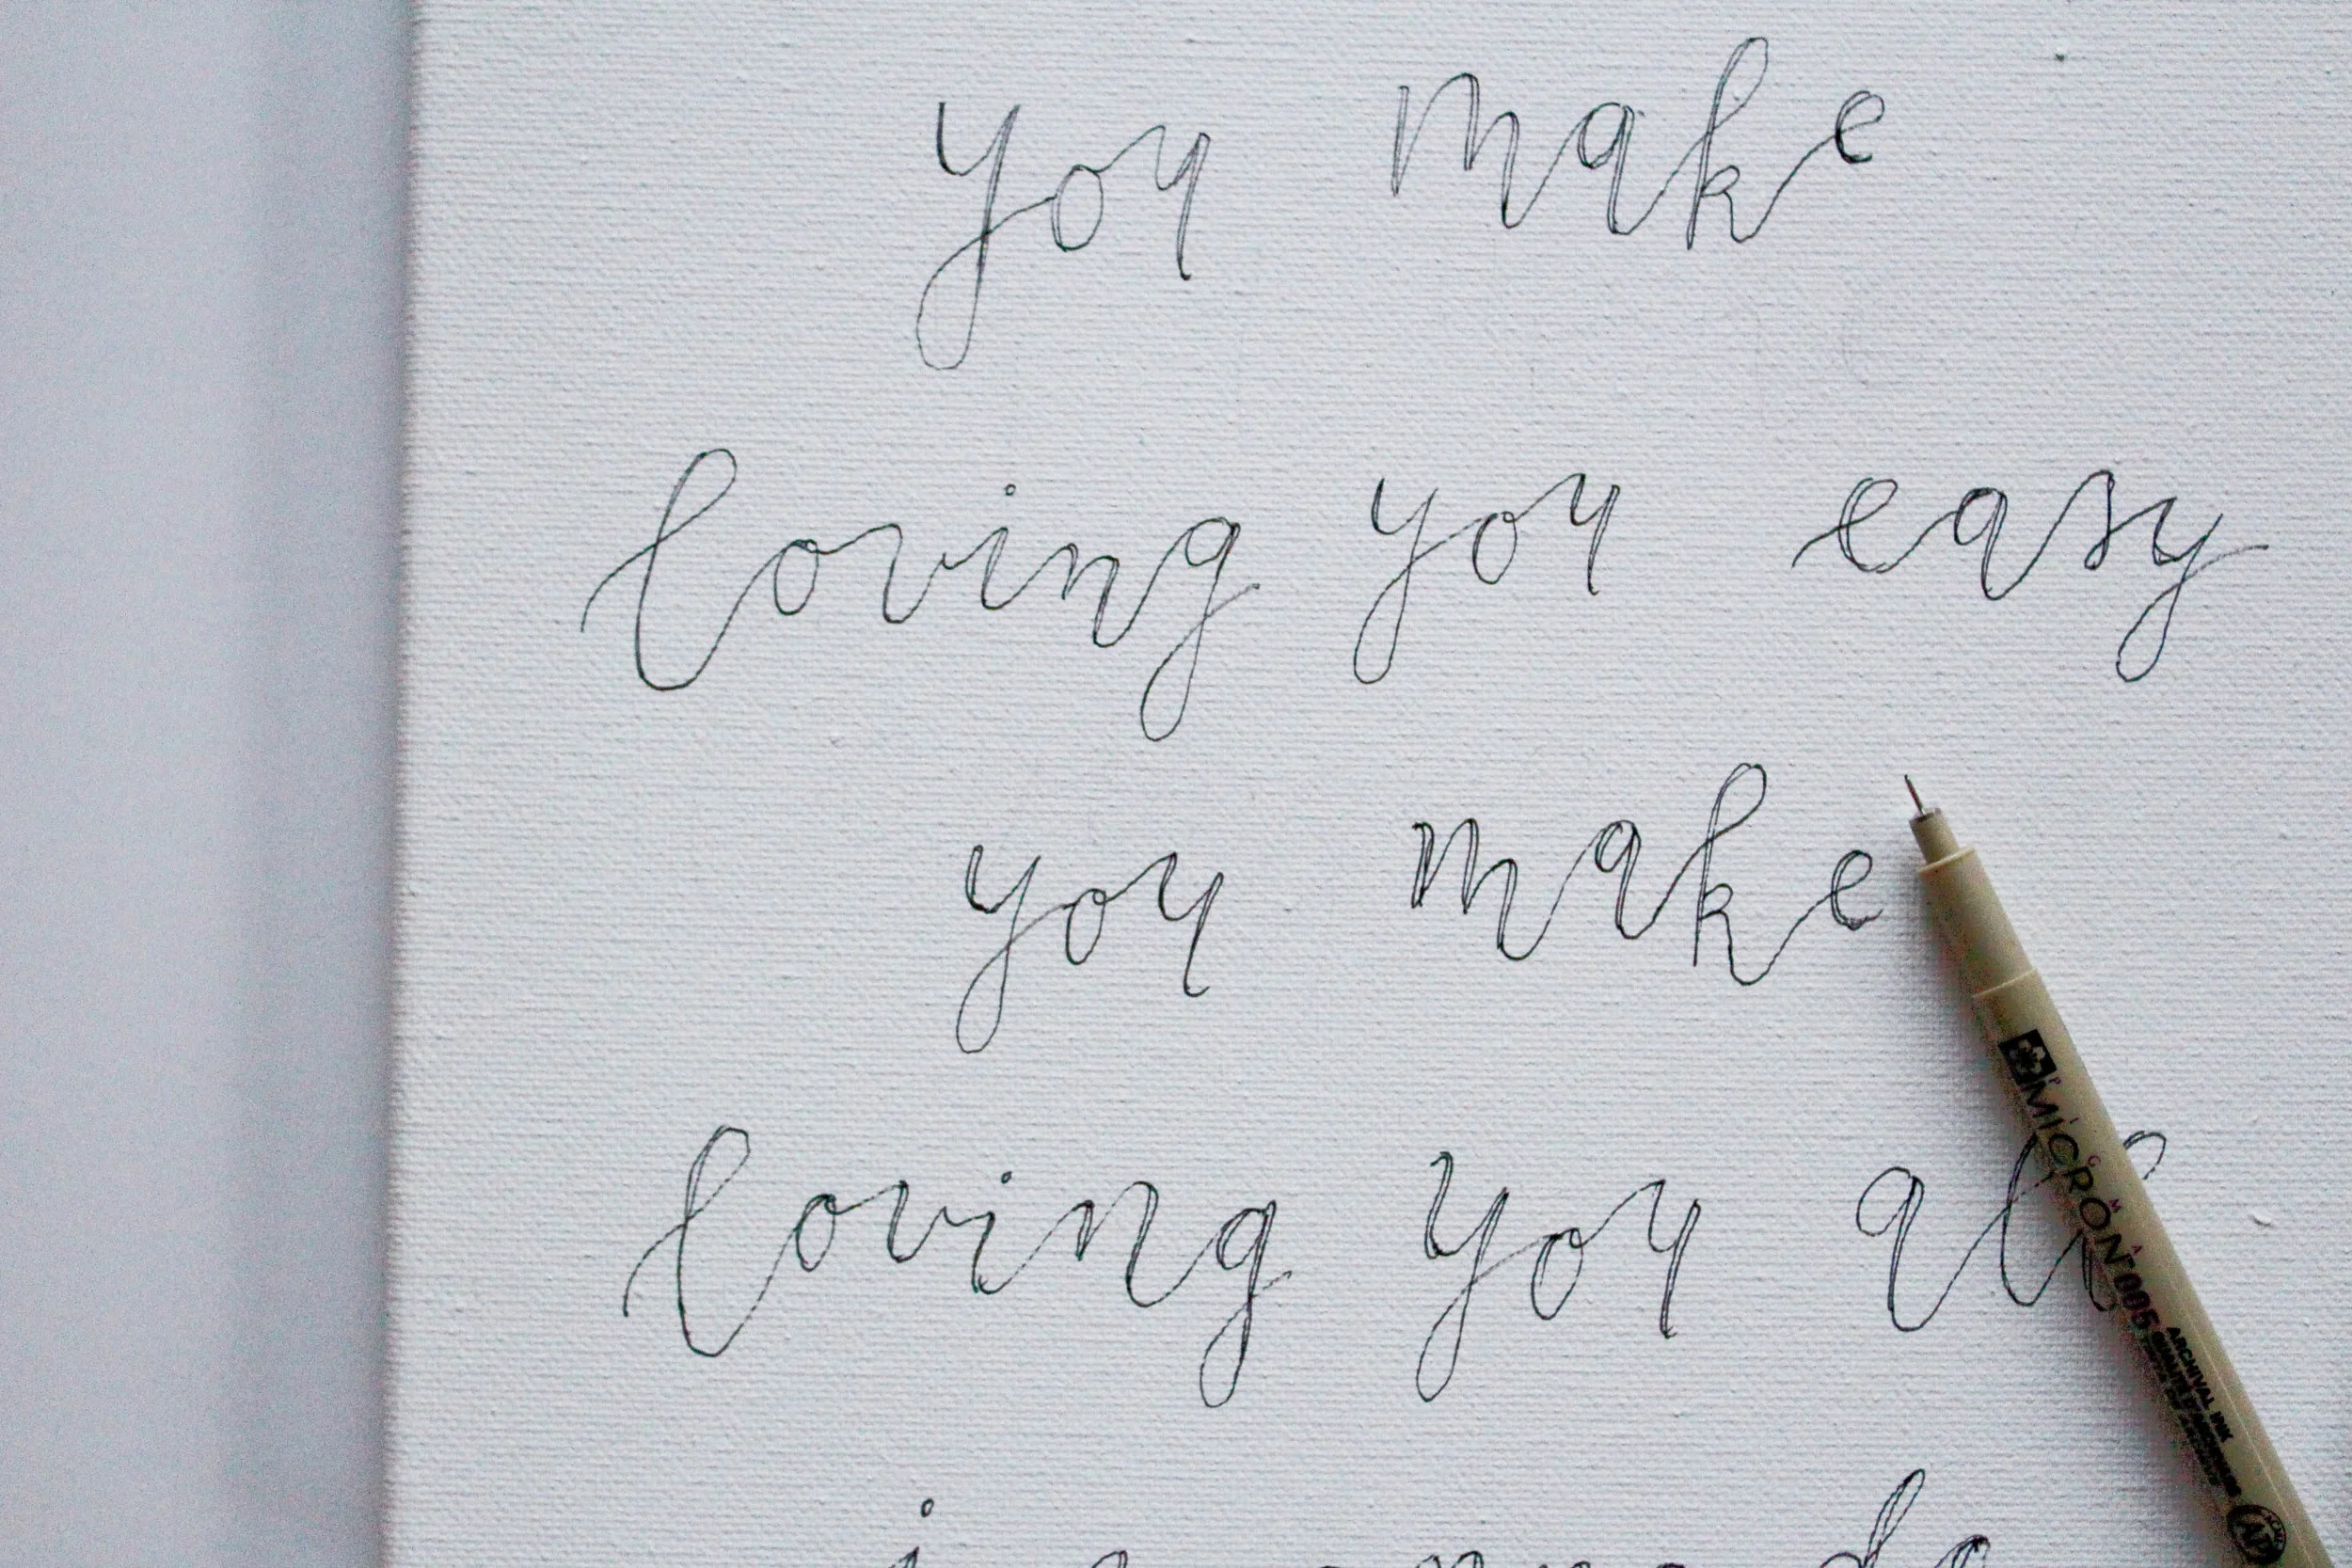 you make
loving you easy
you make
loving you all
MICRON 005
ARCHIVAL INK